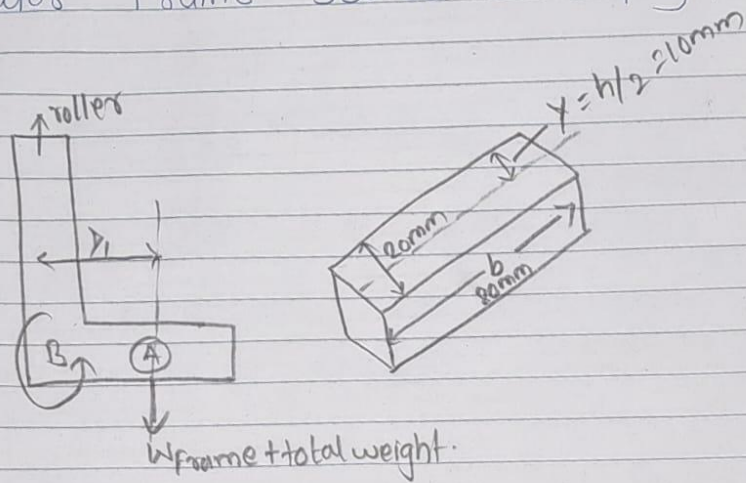 ↑roller
Y = h/2 = 10mm
20mm
b
80mm
B
A
WFrame + total weight.